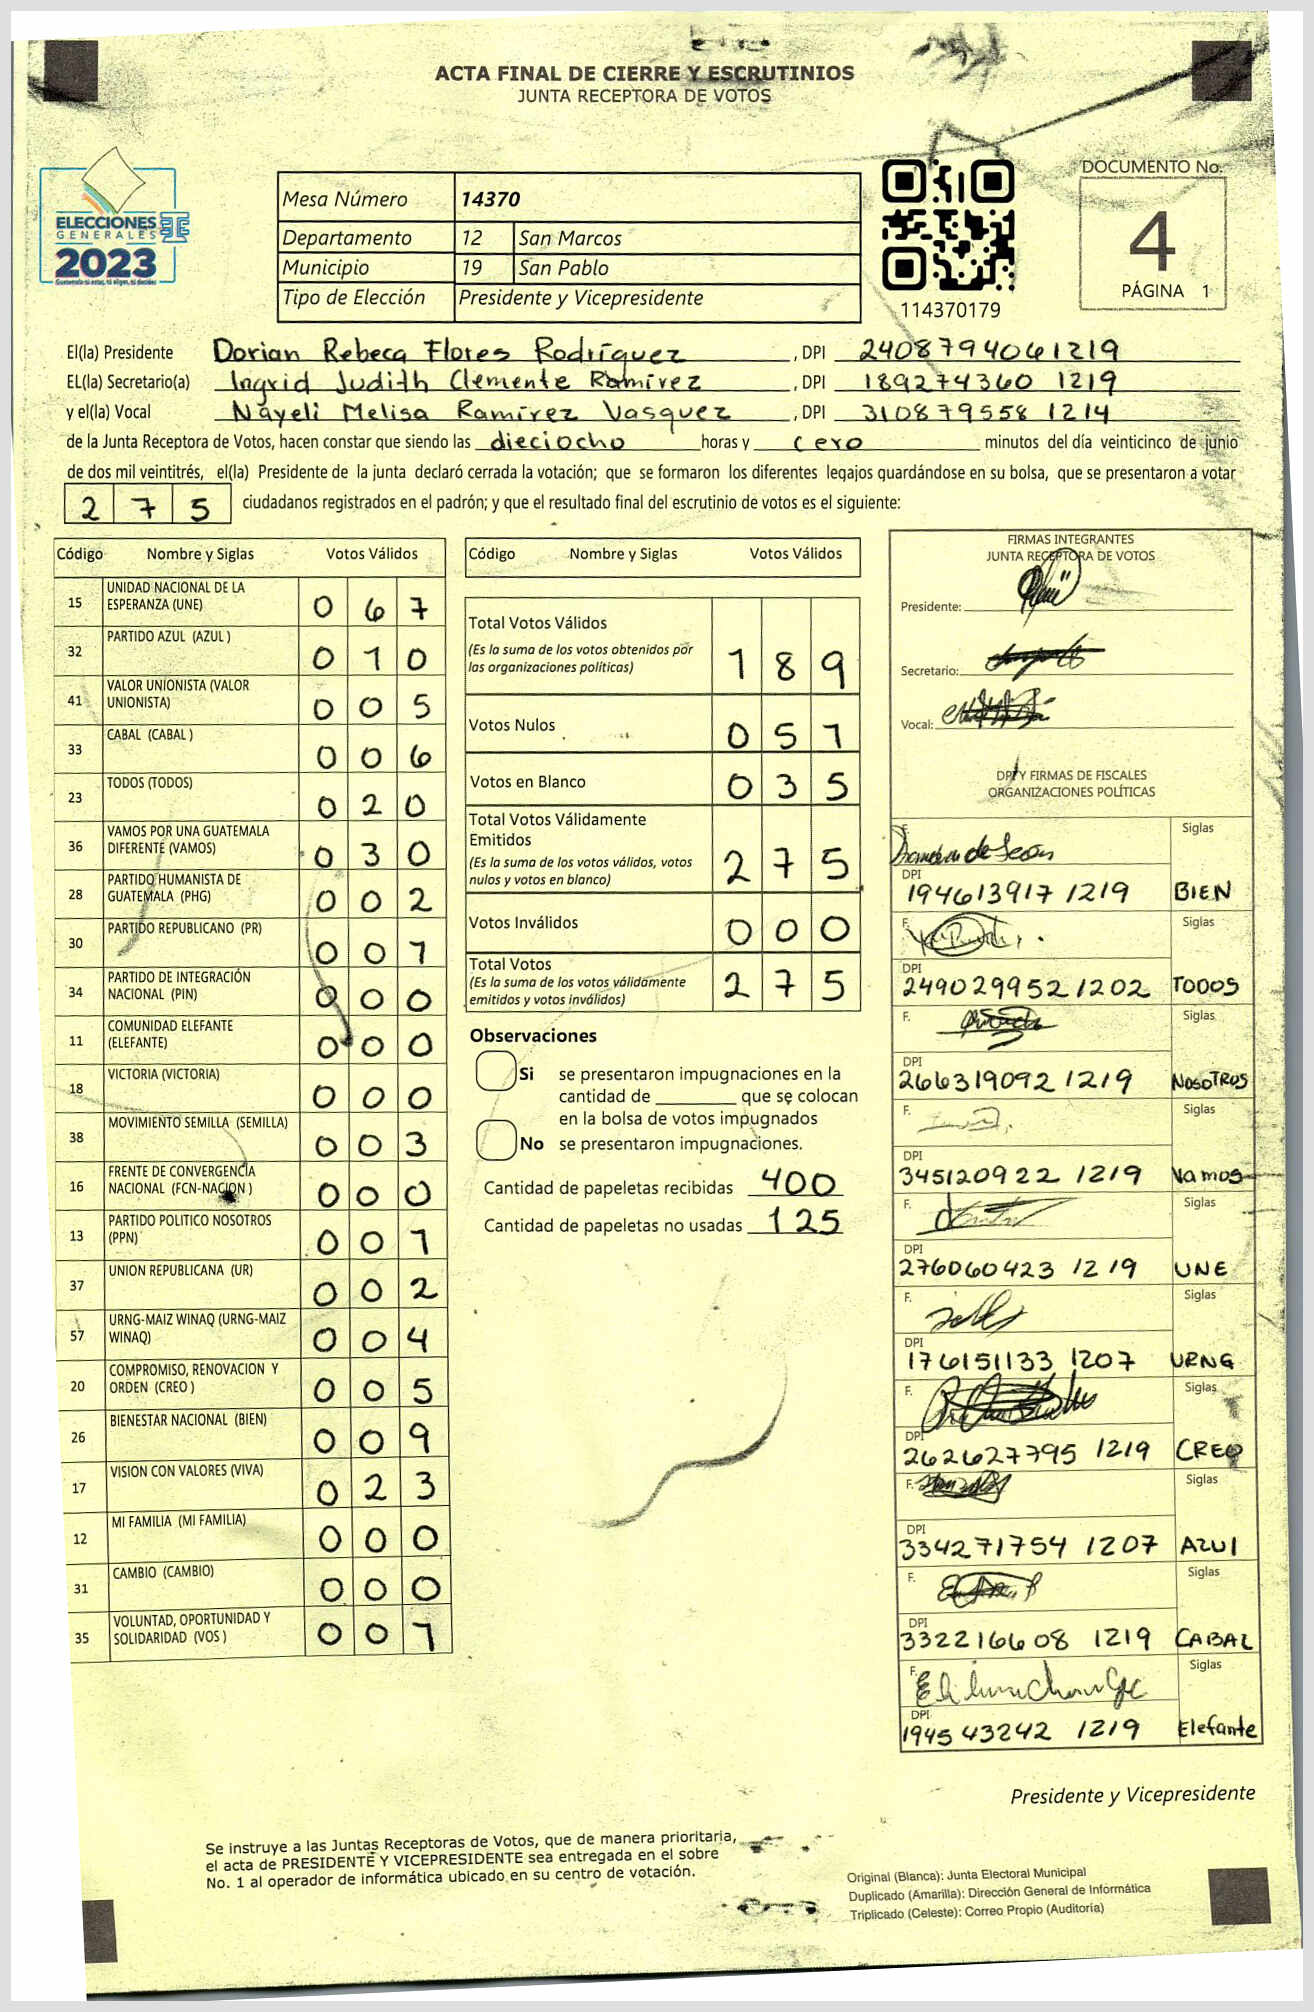 ACTA FINAL DE CIERRE Y ESCRUTINIOS
JUNTA RECEPTORA DE VOTOS
ELECCIONES
GENERALES
2023
Mesa Número 14370
Departamento 12 San Marcos
Municipio 19 San Pablo
Tipo de Elección Presidente y Vicepresidente
114370179
DOCUMENTO No.
4
PÁGINA 1
El(la) Presidente Dorian Rebeca Flores Rodríguez, DPI 2408794061219
EL(la) Secretario(a) Ingrid Judith Clemente Ramírez, DPI 189274360 1219
y el(la) Vocal Nayeli Melisa Ramírez Vasquez, DPI 310879558 1214
de la Junta Receptora de Votos, hacen constar que siendo las dieciocho horas y cero minutos del día veinticinco de junio
de dos mil veintitrés, el(la) Presidente de la junta declaró cerrada la votación; que se formaron los diferentes legajos guardándose en su bolsa, que se presentaron a votar
2 7 5 ciudadanos registrados en el padrón; y que el resultado final del escrutinio de votos es el siguiente:
Código Nombre y Siglas Votos Válidos
15 UNIDAD NACIONAL DE LA
ESPERANZA (UNE) 0 6 7
32 PARTIDO AZUL (AZUL ) 0 1 0
41 VALOR UNIONISTA (VALOR
UNIONISTA) 0 0 5
33 CABAL (CABAL ) 0 0 6
23 TODOS (TODOS) 0 2 0
36 VAMOS POR UNA GUATEMALA
DIFERENTE (VAMOS) 0 3 0
28 PARTIDO HUMANISTA DE
GUATEMALA (PHG) 0 0 2
30 PARTIDO REPUBLICANO (PR) 0 0 1
34 PARTIDO DE INTEGRACIÓN
NACIONAL (PIN) 0 0 0
11 COMUNIDAD ELEFANTE
(ELEFANTE) 0 0 0
18 VICTORIA (VICTORIA) 0 0 0
38 MOVIMIENTO SEMILLA (SEMILLA) 0 0 3
16 FRENTE DE CONVERGENCIA
NACIONAL (FCN-NACION ) 0 0 0
13 PARTIDO POLITICO NOSOTROS
(PPN) 0 0 1
37 UNION REPUBLICANA (UR) 0 0 2
57 URNG-MAIZ WINAQ (URNG-MAIZ
WINAQ) 0 0 4
20 COMPROMISO, RENOVACION Y
ORDEN (CREO ) 0 0 5
26 BIENESTAR NACIONAL (BIEN) 0 0 9
17 VISION CON VALORES (VIVA) 0 2 3
12 MI FAMILIA (MI FAMILIA) 0 0 0
31 CAMBIO (CAMBIO) 0 0 0
35 VOLUNTAD, OPORTUNIDAD Y
SOLIDARIDAD (VOS ) 0 0 1
Código Nombre y Siglas Votos Válidos
Total Votos Válidos
(Es la suma de los votos obtenidos por
las organizaciones políticas) 1 8 9
Votos Nulos 0 5 1
Votos en Blanco 0 3 5
Total Votos Válidamente
Emitidos
(Es la suma de los votos válidos, votos
nulos y votos en blanco) 2 7 5
Votos Inválidos 0 0 0
Total Votos
(Es la suma de los votos válidamente
emitidos y votos inválidos) 2 7 5
Observaciones
Si se presentaron impugnaciones en la
cantidad de ________ que se colocan
en la bolsa de votos impugnados
No se presentaron impugnaciones.
Cantidad de papeletas recibidas 400
Cantidad de papeletas no usadas 125
FIRMAS INTEGRANTES
JUNTA RECEPTORA DE VOTOS
Presidente:
Secretario:
Vocal:
DPI Y FIRMAS DE FISCALES
ORGANIZACIONES POLÍTICAS
F. Siglas
DPI
194613917 1219 BIEN
F. Siglas
DPI
249029952 1202 TODOS
F. Siglas
DPI
266319092 1219 NOSOTROS
F. Siglas
DPI
345120922 1219 Vamos
F. Siglas
DPI
276060423 1219 UNE
F. Siglas
DPI
176151133 1207 URNG
F. Siglas
DPI
262627795 1219 CREO
F. Siglas
DPI
334271754 1207 AZUl
F. Siglas
DPI
332216608 1219 CABAL
F. Siglas
DPI
1945 43242 1219 Elefante
Presidente y Vicepresidente
Se instruye a las Juntas Receptoras de Votos, que de manera prioritaria,
el acta de PRESIDENTE Y VICEPRESIDENTE sea entregada en el sobre
No. 1 al operador de informática ubicado en su centro de votación.
Original (Blanca): Junta Electoral Municipal
Duplicado (Amarilla): Dirección General de Informática
Triplicado (Celeste): Correo Propio (Auditoría)